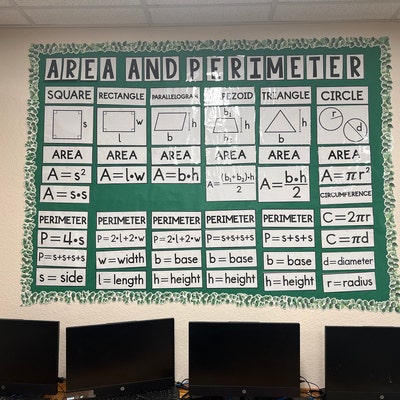 AREA AND PERIMETER
SQUARE
s
AREA
A=s²
A=s•s
PERIMETER
P=4•s
P=s+s+s+s
s=side
RECTANGLE
w
l
AREA
A=l•w
PERIMETER
P=2•l+2•w
w=width
l=length
PARALLELOGRAM
h
b
AREA
A=b•h
PERIMETER
P=2•l+2•w
b=base
h=height
TRAPEZOID
b₁
h
AREA
A=(b₁+b₂)•h
2
PERIMETER
P=s+s+s+s
b=base
h=height
TRIANGLE
h
b
AREA
A=b•h
2
PERIMETER
P=s+s+s
b=base
h=height
CIRCLE
r
d
AREA
A=πr²
CIRCUMFERENCE
C=2πr
C=πd
d=diameter
r=radius